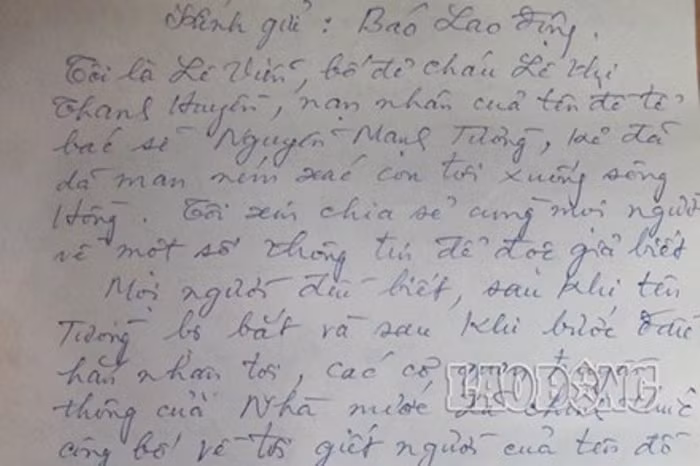 Kính gửi: Báo Lao động.
Tôi là Lê Viến, bố đẻ cháu Lê Thị
Thanh Huyền, nạn nhân của tên đồ tể
bác sĩ Nguyễn Mạnh Tường, kẻ đã
dã man ném xác con tôi xuống sông
Hồng. Tôi xin chia sẻ cùng mọi người
về một số thông tin để độc giả biết
Mọi người đều biết, sau khi tên
Tường bị bắt và sau khi bước đầu
hắn nhận tội, các cơ quan truyền
thông của Nhà nước đã chính thức
công bố về tội giết người của tên đồ
LAO ĐỘNG